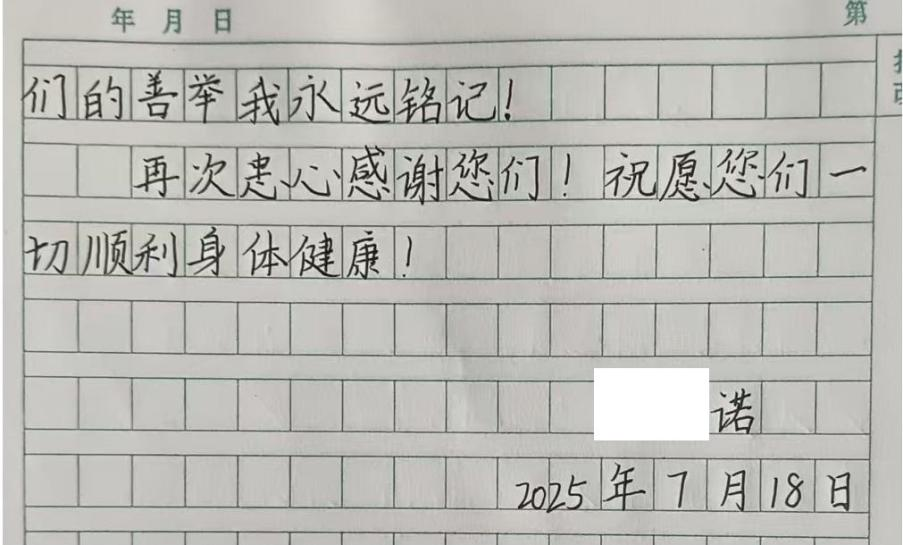 年 月 日 第
们的善举我永远铭记!
再次患心感谢您们!祝愿您们一
切顺利身体健康!
诺
2025年7月18日